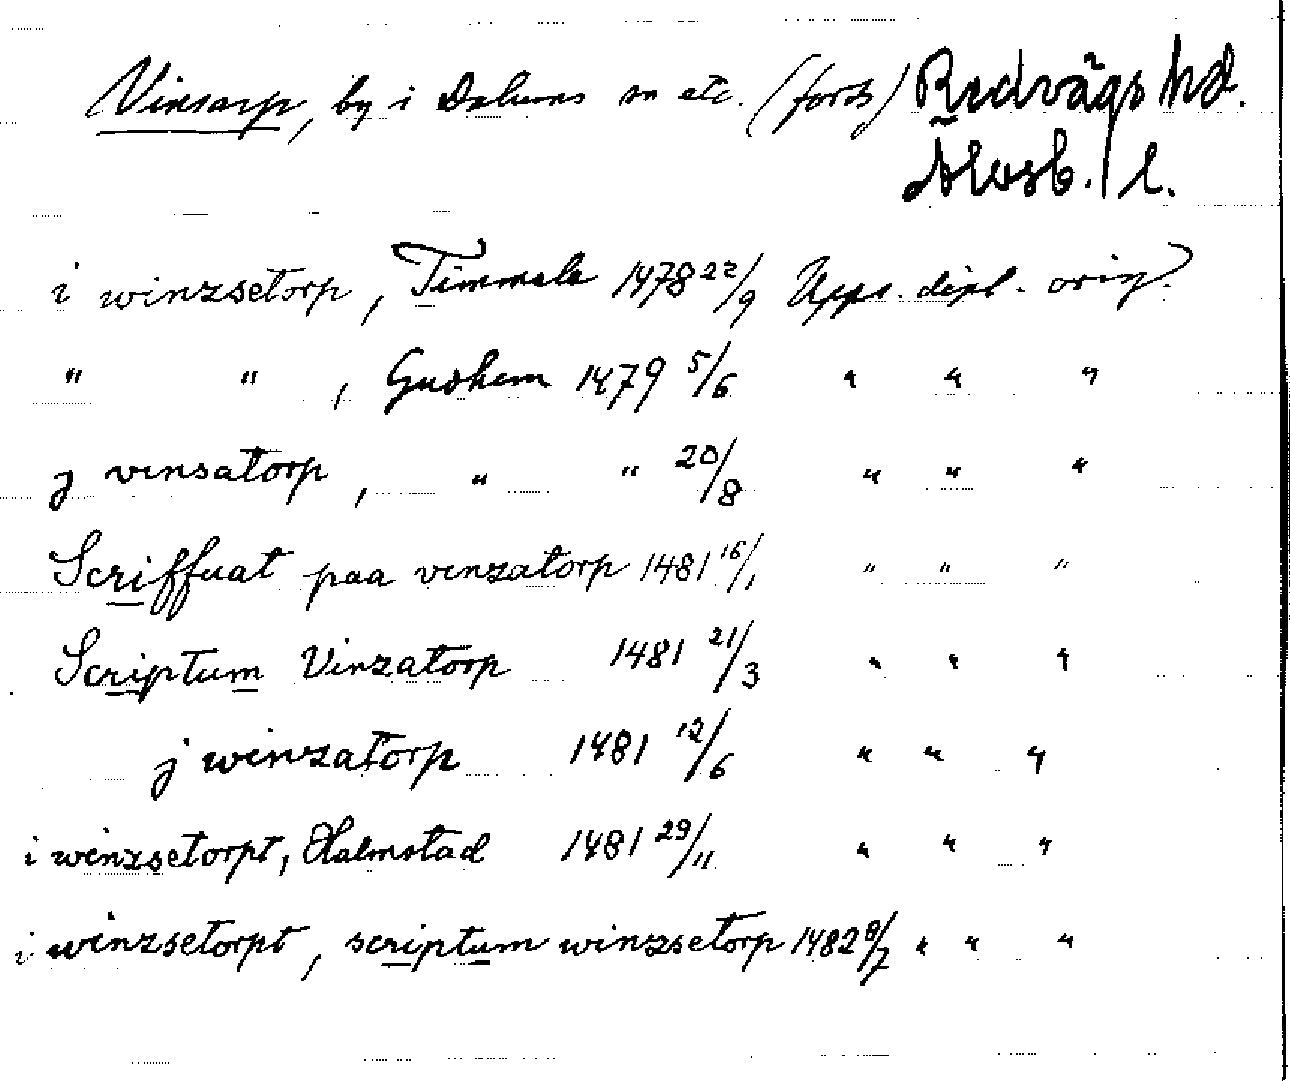 Vinsarp, by i Dalums sn etc. (forts) Redvägs hd.
Älvsb. l.
i winzsetorp, Timmele 1478 22/9 Upps. dipl. orig.
" " , Gudhem 1479 5/6 " " "
j vinsatorp, " " 20/8 " " "
Scriffuat paa vinzatorp 1481 16/1 " " "
Scriptum Vinzatorp 1481 21/3 " " "
j winzatorp 1481 12/6 " " "
i winzsetorpt, Halmstad 1481 29/11 " " "
i winzsetorpt, scriptum winzsetorp 1482 8/7 " " "